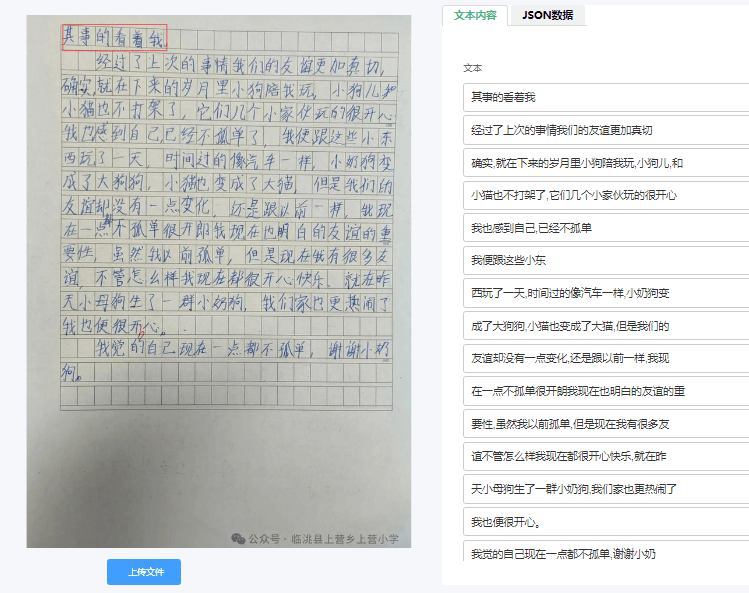 其事的看着我
经过了上次的事情我们的友谊更加真切,
确实,就在下来的岁月里小狗陪我玩,小狗儿,和
小猫也不打架了,它们几个小家伙玩的很开心
我也感到自己,已经不孤单了,我便跟这些小东
西玩了一天,时间过的像汽车一样,小奶狗变
成了大狗狗,小猫也变成了大猫,但是我们的
友谊却没有一点变化,还是跟以前一样,我现
在一点都不孤单很开郎我现在也明白的友谊的重
要性,虽然我以前孤单,但是现在我有很多友
谊,不管怎么样我现在都很开心快乐,就在昨
天小母狗生了一群小奶狗,我们家也更热闹了
我也便很开心。
我觉的自己现在一点都不孤单,谢谢小奶
狗。
公众号·临洮县上营乡上营小学
上传文件
文本内容
JSON数据
文本
其事的看着我
经过了上次的事情我们的友谊更加真切
确实,就在下来的岁月里小狗陪我玩,小狗儿,和
小猫也不打架了,它们几个小家伙玩的很开心
我也感到自己,已经不孤单
我便跟这些小东
西玩了一天,时间过的像汽车一样,小奶狗变
成了大狗狗,小猫也变成了大猫,但是我们的
友谊却没有一点变化,还是跟以前一样,我现
在一点不孤单很开朗我现在也明白的友谊的重
要性,虽然我以前孤单,但是现在我有很多友
谊不管怎么样我现在都很开心快乐,就在昨
天小母狗生了一群小奶狗,我们家也更热闹了
我也便很开心。
我觉的自己现在一点都不孤单,谢谢小奶